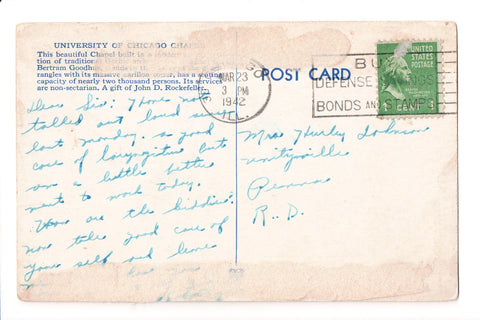 UNIVERSITY OF CHICAGO CHAPEL
This beautiful Chapel built in a modern
tion of traditional Gothic
Bertram Goodhue, stands in
rangles with its massive carillon tower, has a seating
capacity of nearly two thousand persons. Its services
are non-sectarian. A gift of John D. Rockefeller.
Dear Sis: I have not
talked out loud since
last monday. a good
case of laryngitus but
am a little better
went to work today.
How are the kiddies.
now take good care of
your self and
MAR 23
3 PM
1942
ILL.
POST CARD
BUY
DEFENSE
BONDS AND STAMPS
UNITED
STATES
POSTAGE
Mrs Hurley Johnson
Unityville
Penna
R. D.